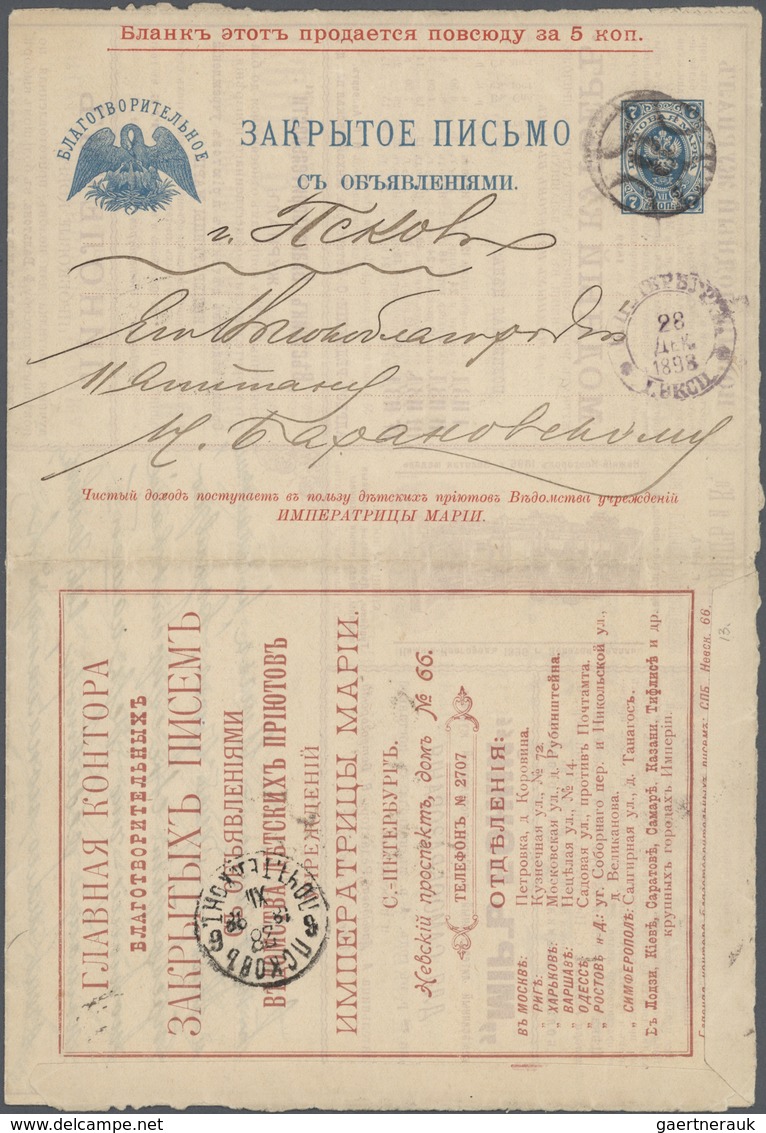 Бланкъ этотъ продается повсюду за 5 коп.
БЛАГОТВОРИТЕЛЬНОЕ
ЗАКРЫТОЕ ПИСЬМО
СЪ ОБЪЯВЛЕНІЯМИ.
7 7
г. Псковъ
28
ДЕК
1898
Его Высокоблагородію
Капитану
Барановскому
Чистый доходъ поступаетъ въ пользу дѣтскихъ пріютовъ Вѣдомства учрежденій
ИМПЕРАТРИЦЫ МАРІИ.
ГЛАВНАЯ КОНТОРА
БЛАГОТВОРИТЕЛЬНЫХЪ
ЗАКРЫТЫХЪ ПИСЕМЪ
ОБЪЯВЛЕНІЯМИ
ВѢДОМСТВА ДѢТСКИХЪ ПРІЮТОВЪ
УЧРЕЖДЕНІЙ
ИМПЕРАТРИЦЫ МАРІИ.
С.-ПЕТЕРБУРГЪ.
Невскій проспектъ, домъ № 66.
ТЕЛЕФОНЪ № 2707
ОТДѢЛЕНІЯ:
ВЪ МОСКВѢ: Петровка, д Коровина.
„ РИГѢ: Кузнечная ул., № 72.
„ ХАРЬКОВѢ: Московская ул., д. Рубинштейна.
„ ВАРШАВѢ: Нецѣлая ул., № 14.
„ ОДЕССѢ: Садовая ул., противъ Почтамта.
„ РОСТОВѢ н-Д.: уг. Соборнаго пер. и Никольской ул.,
д. Великанова.
„ СИМФЕРОПОЛѢ: Салгирная ул., д. Танагосъ.
Въ Лодзи, Кіевѣ, Саратовѣ, Самарѣ, Казани, Тифлисѣ и др.
крупныхъ городахъ Имперіи.
Главная контора благотворительныхъ писемъ: СПБ Невск. 66.
13.
ПСКОВЪ
28
XII
98
6 6
gaertnerauk @ delcampe.net